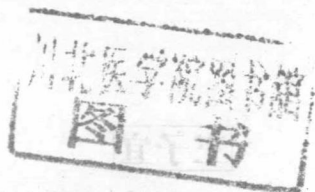 川北医学院图书馆
图书